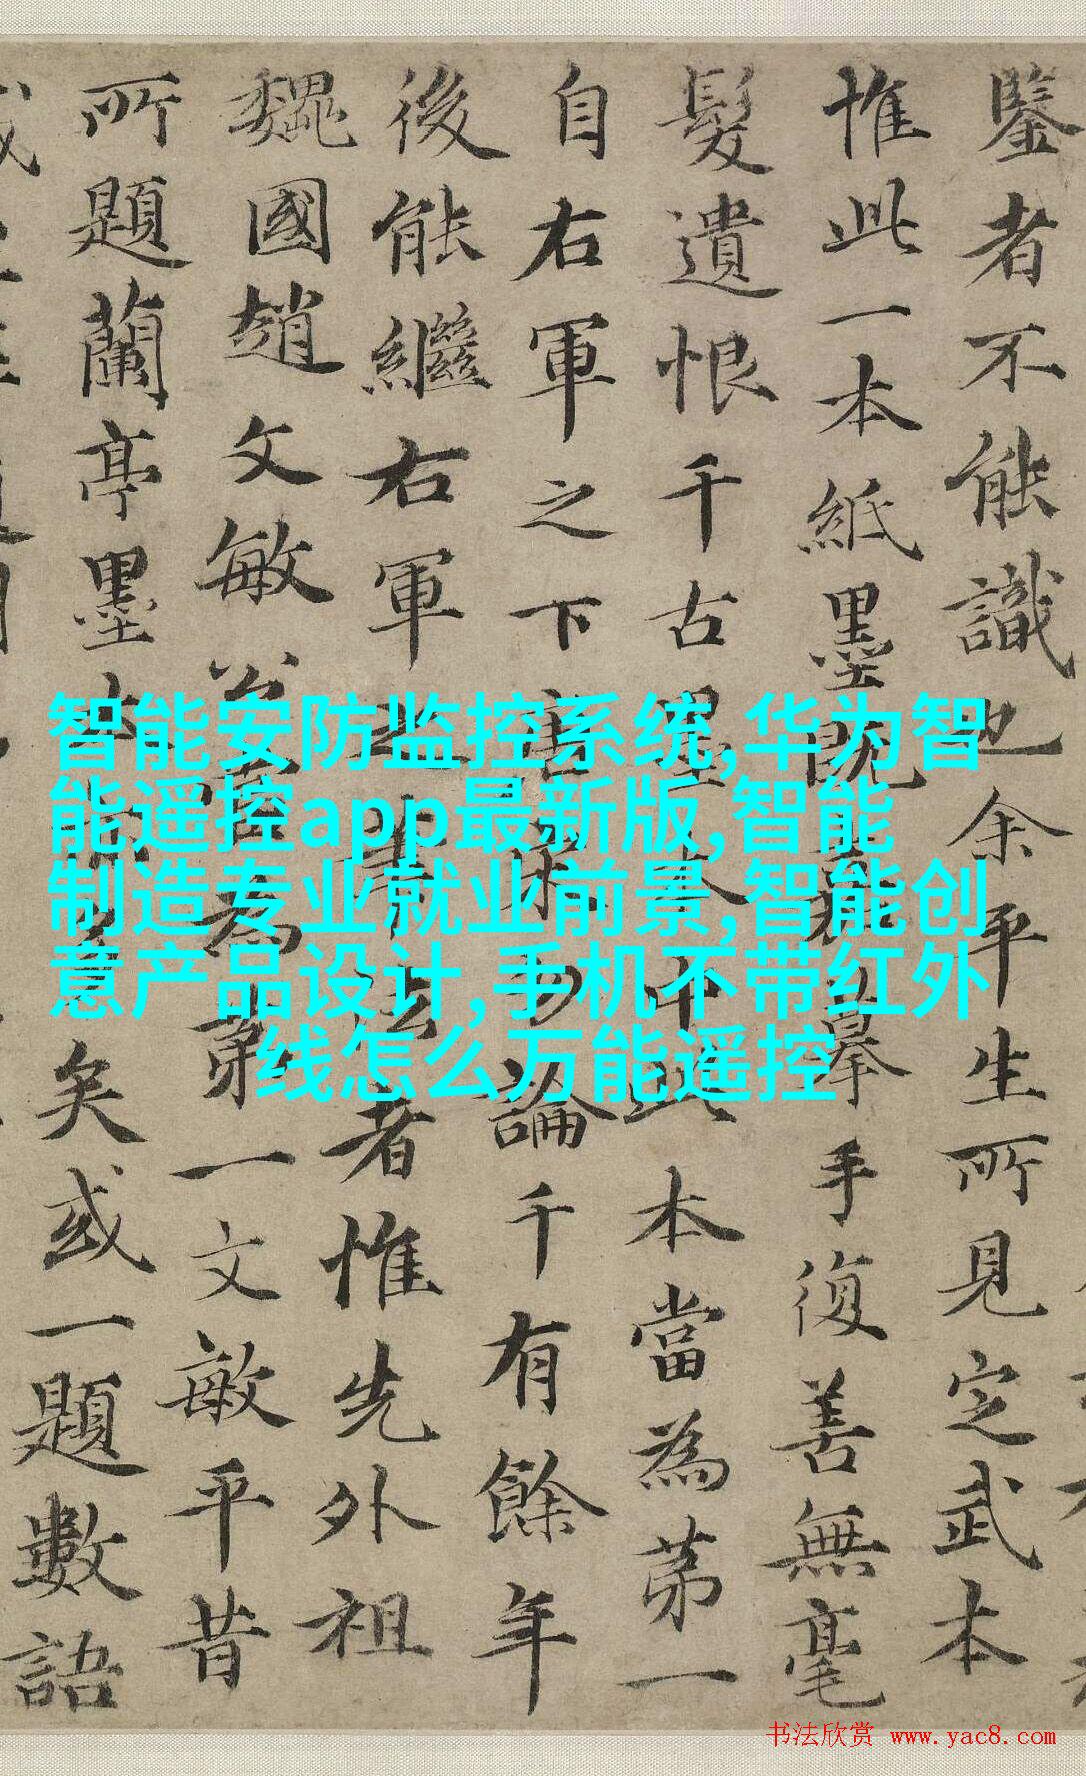 鑒者不能識也余平生所見定武本
惟此一本紙墨既摹手復善無毫
髮遺恨千古墨本中此本當為第一
自右軍之下唐宋勿論千有餘年
後能繼右軍之筆法者惟先外祖
魏國趙文敏公當為第一文敏平昔
所題蘭亭墨本矣或一題數語
智能安防监控系统,华为智
能遥控app最新版,智能
制造专业就业前景,智能创
意产品设计,手机不带红外
线怎么万能遥控
书法欣赏 www.yac8.com